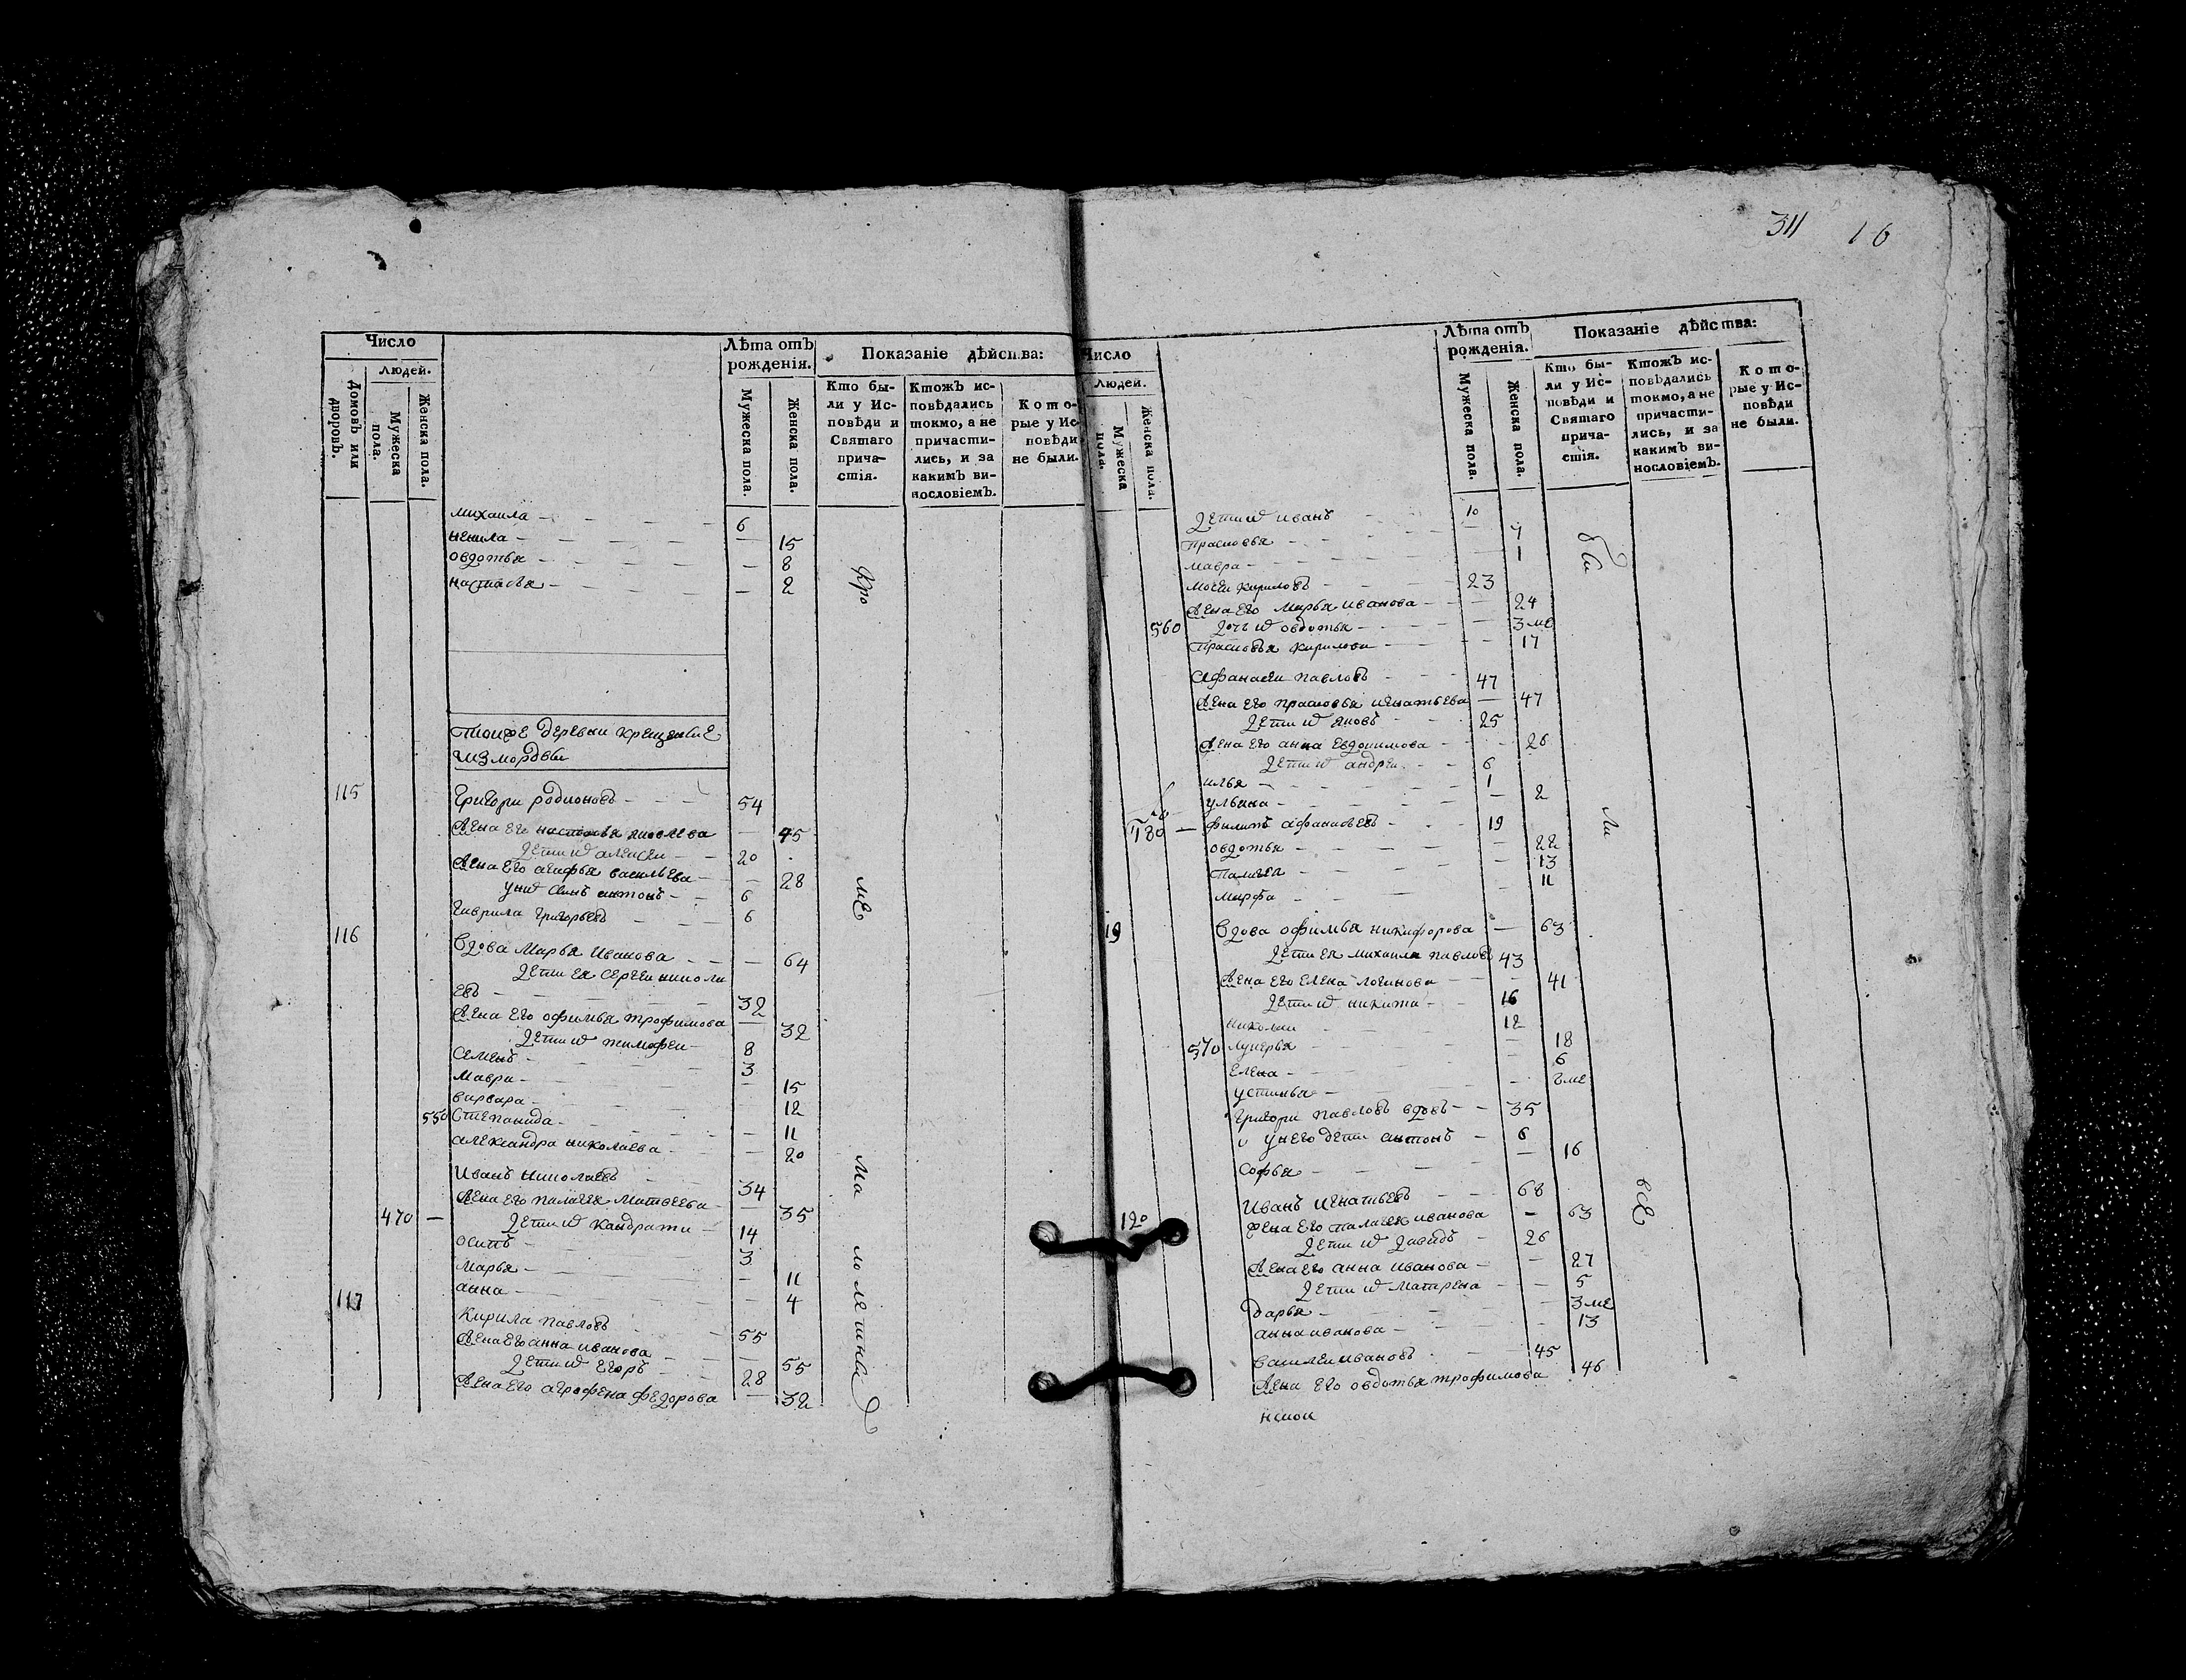 311 16
Число
Людей.
Домовъ или дворовъ.
Мужеска пола.
Женска пола.
Лѣта отъ рожденія.
Мужеска пола.
Женска пола.
Показаніе дѣйства:
Кто бы-
ли у Ис-
повѣди и
Святаго
прича-
стія.
Ктожъ ис-
повѣдались
токмо, а не
причасти-
лись, и за
какимъ ви-
нословіемъ.
Кото-
рые у Ис-
повѣди
не были.
михаила 6
ненила 15
овдотья 8
настасья 2
тоиже деревни крещеные
измордвы
115 Григори родионовъ 54
жена его настасья яковлева 45
дети ѿ алексеи 20
жена его агафья васильева 28
униѿ сынъ антонъ 6
гаврила григорьевъ 6
116 вдова марья иванова 64
дети ея сергеи никола
евъ 32
жена его офимья трофимова 32
дети ѿ тимофеи 8
семенъ 3
мавра 15
варвара 12
550 степанида 11
александра николаева 20
иванъ николаевъ 34
жена его палагея матвеева 35
470 дети ѿ кандрати 14
осипъ 3
марья 11
анна 4
117 кирила павловъ 55
жена его анна иванова 55
дети ѿ егоръ 28
жена его аграфена федорова 32
кро
ме
ма
молетныхъ
Число
Людей.
Мужеска пола.
Женска пола.
Лѣта отъ
рожденія.
Мужеска пола.
Женска пола.
Показаніе дѣйства:
Кто бы-
ли у Ис-
повѣди и
Святаго
прича-
стія.
Ктожъ ис-
повѣдались
токмо, а не
причасти-
лись, и за
какимъ ви-
нословіемъ.
Кото-
рые у Ис-
повѣди
не были.
дети ѿ иванъ 10
прасковья 4
мавра 1
моеи кириловъ 23
жена его марья иванова 24
560 дочь ѿ овдотья 3 ме
прасковья кирилова 17
афанасеи павловъ 47
жена его прасковья игнатьева 47
дети ѿ яковъ 25
жена его анна евдокимова 26
дети ѿ андреи 6
илья 1
ульяна 2
480 филипъ афанасьевъ 19
овдотья 22
палагея 13
марфа 11
19 вдова офимья никифорова 63
дети ея михаила павловъ 43
жена его елена логинова 41
дети ѿ никита 16
николаи 12
570 лукерья 18
елена 6
устинья ме
григори павловъ вдовъ 35
и унего дети антонъ 6
софья 16
120 иванъ игнатьевъ 68
жена его палагея иванова 63
дети ѿ давидъ 26
жена его анна иванова 27
дети ѿ матрена 5
дарья 3 ме
анна иванова 13
василеи ивановъ 45
жена его овдотья трофимова 46
бы
ли
все